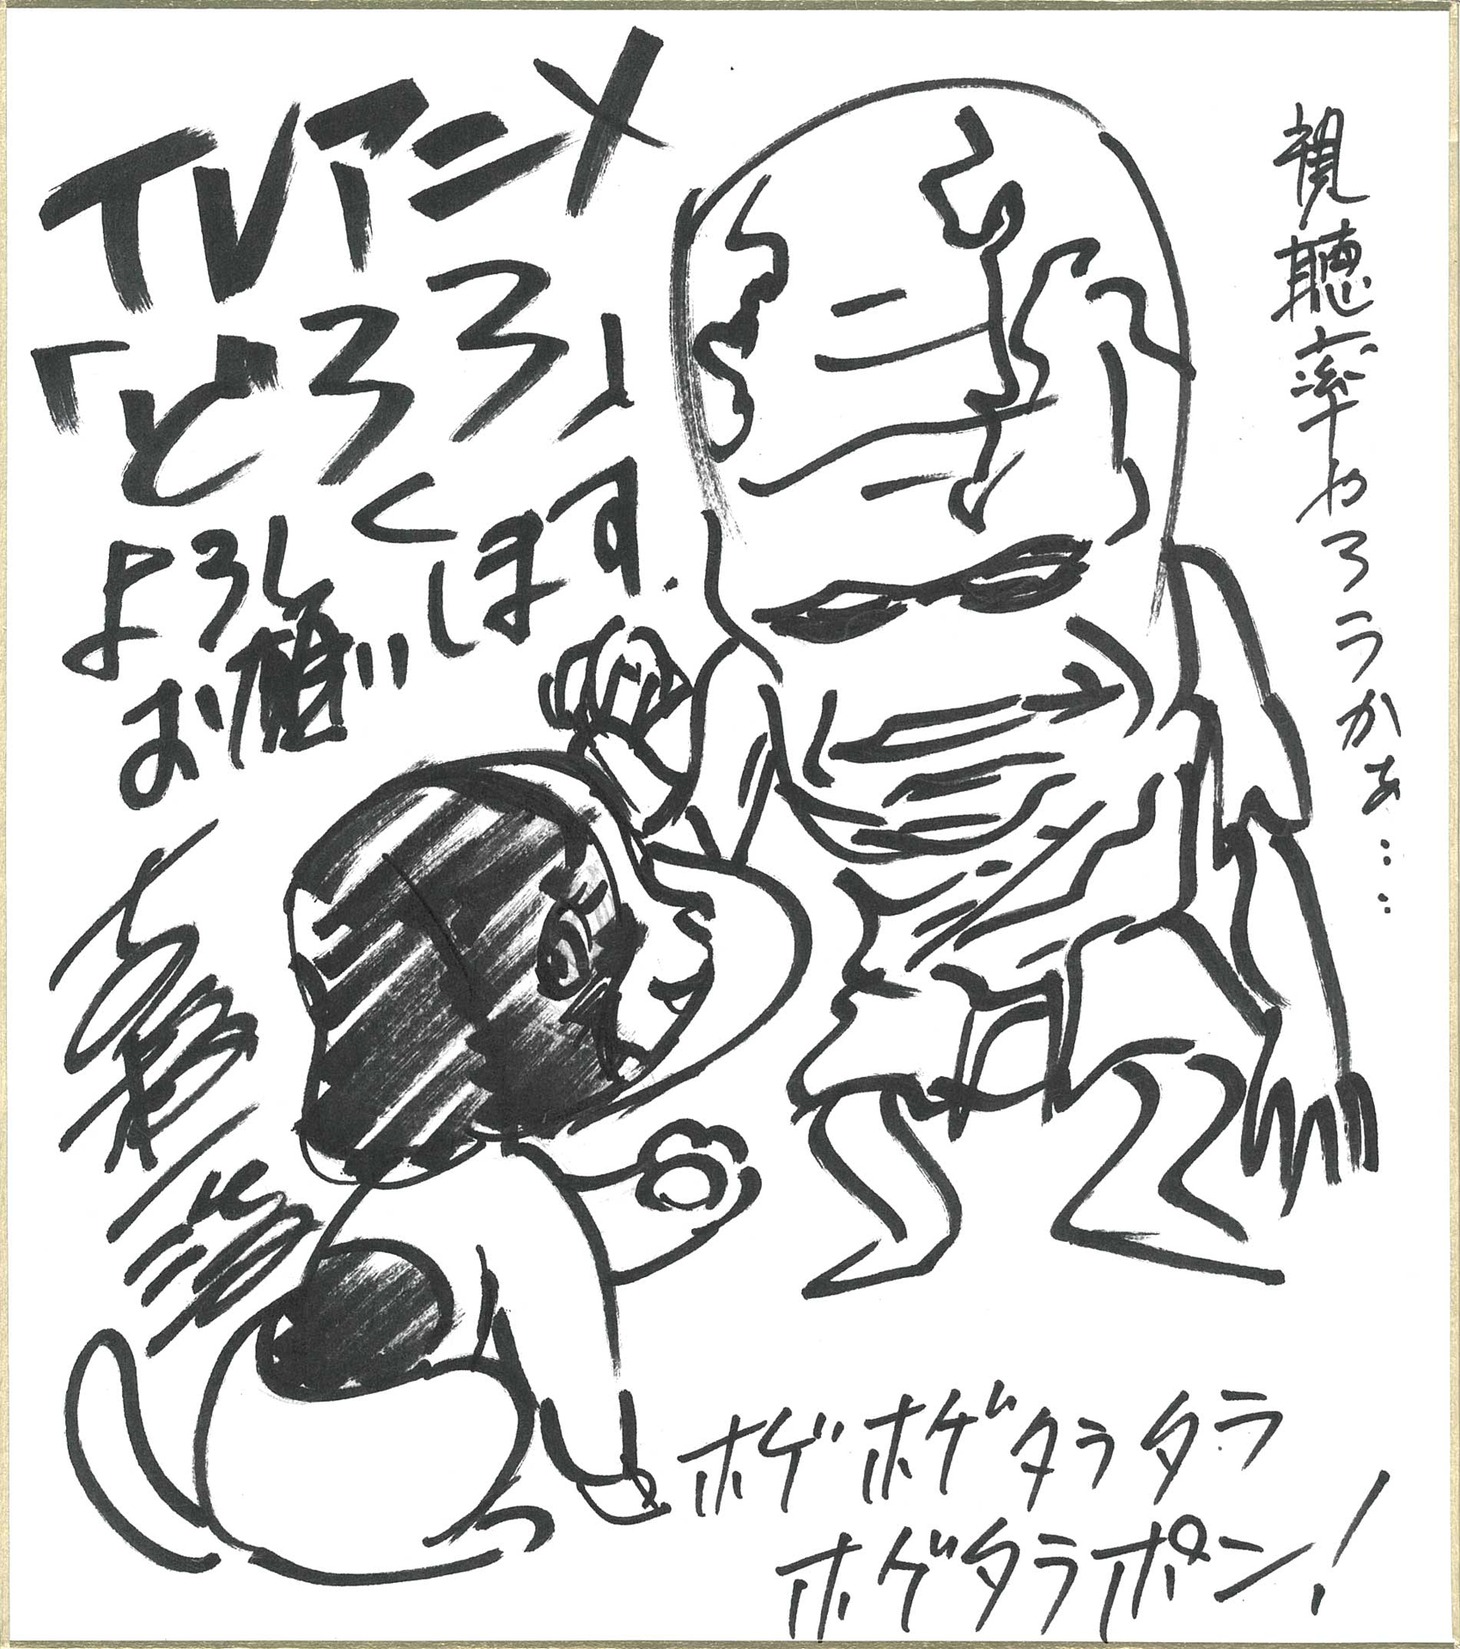 TVアニメ
「どろろ」
よろしく
お願いします.
視聴率やろうかぁ…
ホゲホゲタラタラ
ホゲタラポン!